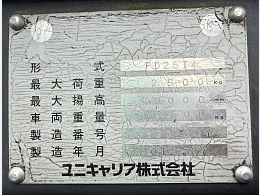 形式 FD25T4
最大荷重 2500 kg
最大揚高 3000 mm
車両重量 kg
製造番号
製造年月
ユニキャリア株式会社